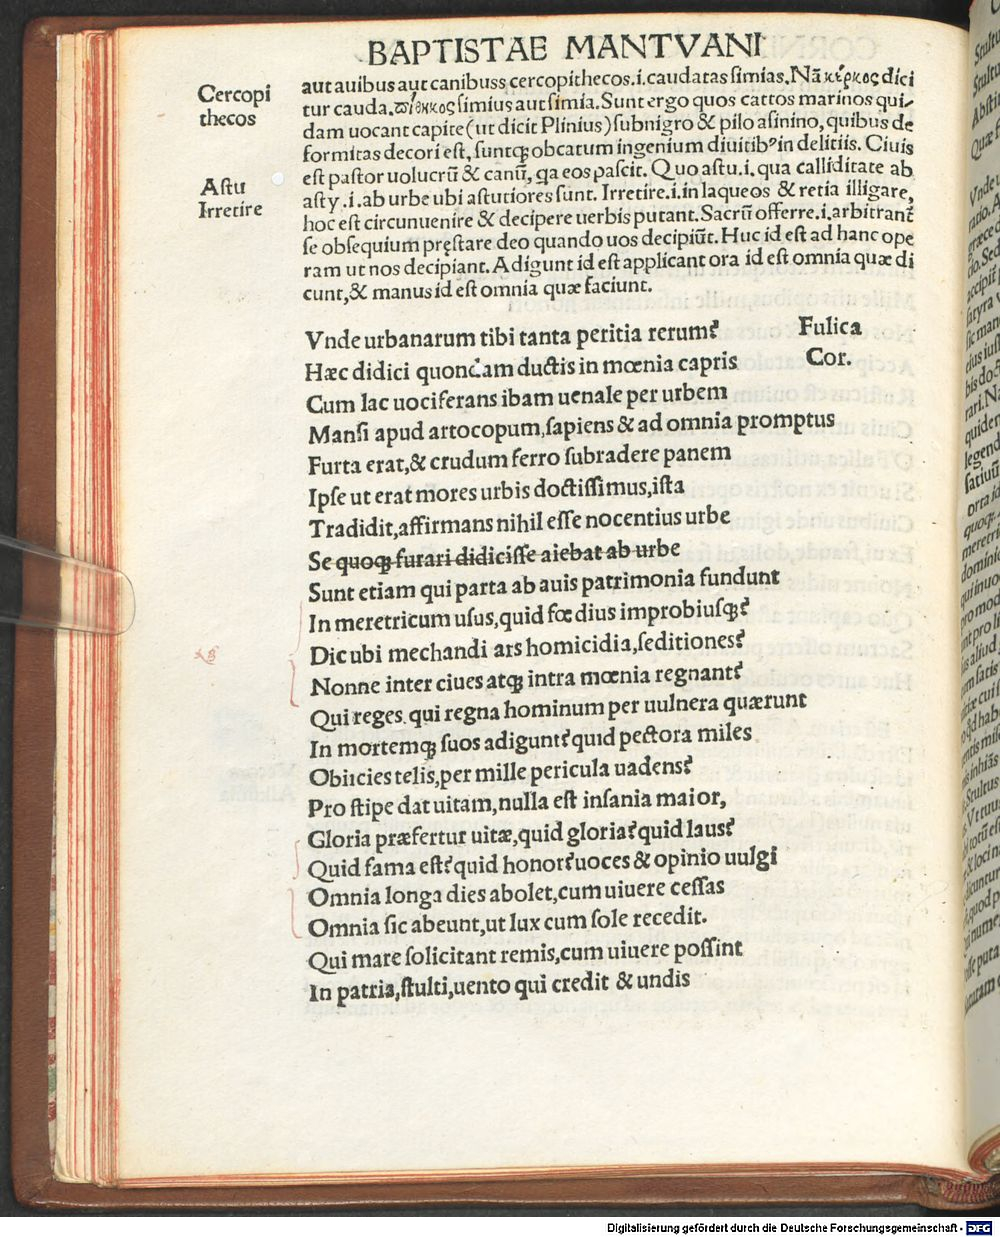 BAPTISTAE MANTVANI
Cercopi
thecos
aut auibus aut canibuss cercopithecos.i.caudatas simias.Nã κέρκος dici
tur cauda.πίθηκος simius aut simia.Sunt ergo quos cattos marinos qui-
dam uocant capite(ut dicit Plinius)subnigro & pilo asinino,quibus de
formitas decori est,suntq; obcatum ingenium diuitib' in delitiis. Ciuis
Astu
Irretire
est pastor uolucrũ & canũ, qa eos pascit. Quo astu.i.qua calliditate ab
asty.i.ab urbe ubi astutiores sunt. Irretire.i.in laqueos & retia illigare,
hoc est circunuenire & decipere uerbis putant.Sacrũ offerre.i.arbitrant̃
se obsequium pręstare deo quando uos decipiũt. Huc id est ad hanc ope
ram ut nos decipiant.Adigunt id est applicant ora id est omnia quæ di
cunt,& manus id est omnia quæ faciunt.
Vnde urbanarum tibi tanta peritia rerum?
Fulica
Hæc didici quondam ductis in mœnia capris
Cor.
Cum lac uociferans ibam uenale per urbem
Mansi apud artocopum,sapiens & ad omnia promptus
Furta erat,& crudum ferro subradere panem
Ipse ut erat mores urbis doctissimus,ista
Tradidit,affirmans nihil esse nocentius urbe
Se quoq; furari didicisse aiebat ab urbe
Sunt etiam qui parta ab auis patrimonia fundunt
In meretricum usus,quid fœdius improbiusq;?
Dic ubi mechandi ars homicidia,seditiones?
Nonne inter ciues atq; intra mœnia regnant?
Qui reges qui regna hominum per uulnera quærunt
In mortemq; suos adigunt?quid pectora miles
Obiicies telis,per mille pericula uadens?
Pro stipe dat uitam,nulla est insania maior,
Gloria præfertur uitæ,quid gloria?quid laus?
Quid fama est?quid honor?uoces & opinio uulgi
Omnia longa dies abolet,cum uiuere cessas
Omnia sic abeunt,ut lux cum sole recedit.
Qui mare solicitant remis,cum uiuere possint
In patria,stulti,uento qui credit & undis
Digitalisierung gefördert durch die Deutsche Forschungsgemeinschaft - DFG